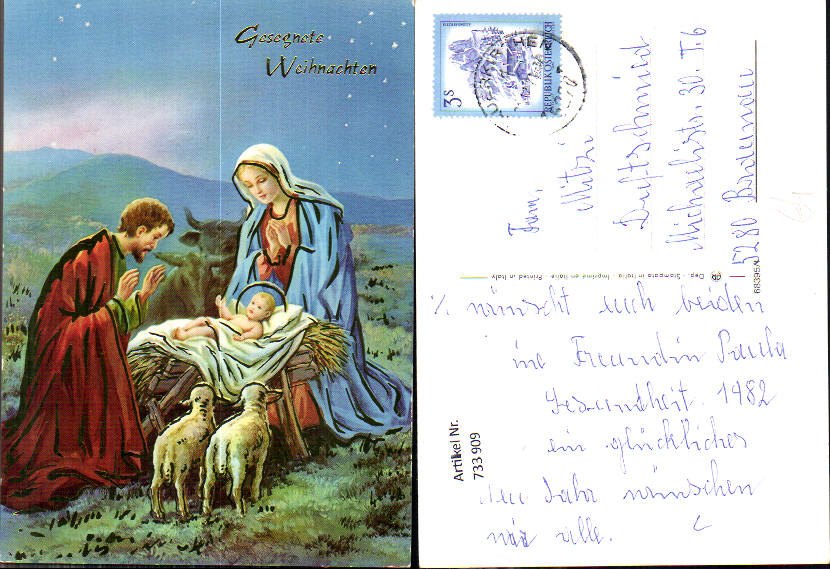 Gesegnete
Weihnachten
3 S
REPUBLIK ÖSTERREICH
Fam,
Mitzi
Duftschmid
Michaelistr. 30. T.6
5280 Braunau
Dep. - Stampato in Italia - Imprimé en Italie - Printed in Italy
68395/4
Artikel Nr.
733 909
wünscht euch beiden
Freundin Paula
Gesundheit. 1982
ein glückliches
Jahr wünschen
wir alle.